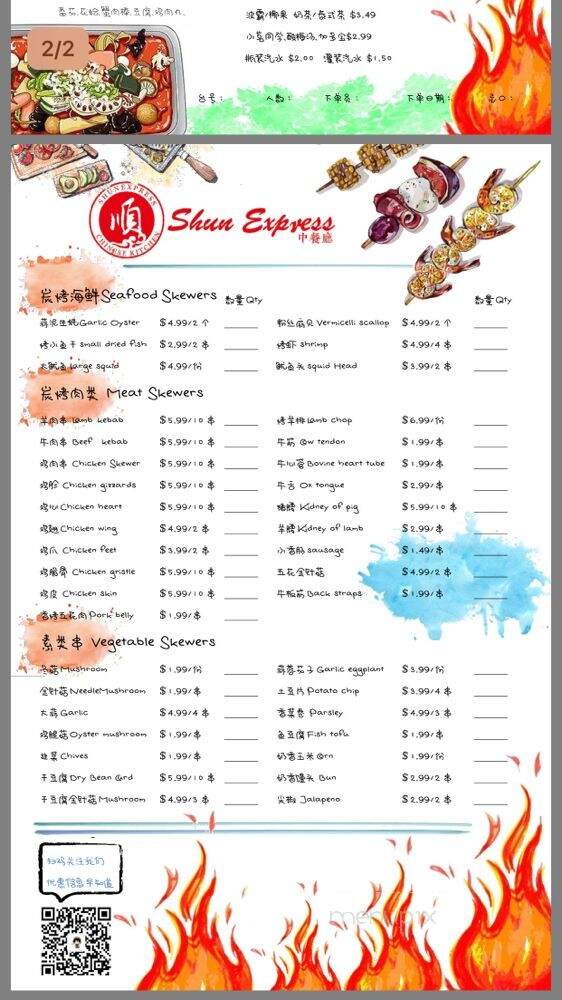 番茄,花蛤,蟹肉棒,豆腐,鸡肉丸,
2/2
波霸/椰果 奶茶/泰式茶 $3.49
小茗同学,酸梅汤,加多宝$2.99
瓶装汽水 $2.00 灌装汽水 $1.50
台号: 人数: 下单员: 下单日期:
SHUN EXPRESS
順
CHINESE KITCHEN
Shun Express
中餐廳
炭烤海鲜Seafood Skewers 数量Qty 数量Qty
蒜泥生蚝Garlic Oyster $4.99/2个 粉丝扇贝 Vermicelli scallop $4.99/2串
烤小鱼干small dried fish $2.99/2串 烤虾 shrimp $4.99/4串
大鱿鱼 large squid $4.99/份 鱿鱼头 squid Head $3.99/2串
炭烤肉类 Meat Skewers
羊肉串 Lamb kebab $5.99/10串 烤羊排Lamb chop $6.99/份
牛肉串 Beef kebab $5.99/10串 牛筋 Cow tendon $1.99/串
鸡肉串 Chicken Skewer $5.99/10串 牛心管Bovine heart tube $1.99/串
鸡胗 Chicken gizzards $5.99/10串 牛舌 Ox tongue $2.99/串
鸡心Chicken heart $5.99/10串 猪腰 Kidney of pig $5.99/10串
鸡翅Chicken wing $4.99/2串 羊腰 Kidney of lamb $2.99/串
鸡爪 Chicken feet $3.99/2串 小香肠 sausage $1.49/串
鸡脆骨 Chicken gristle $5.99/10串 五花金针菇 $4.99/2串
鸡皮 Chicken skin $5.99/10串 牛板筋 Back straps $1.99/串
香烤五花肉Pork belly $1.99/串
素类串 Vegetable Skewers
冬菇 Mushroom $1.99/份 蒜蓉茄子 Garlic eggplant $3.99/份
金针菇 NeedleMushroom $1.99/串 土豆片Potato chip $3.99/4串
大蒜Garlic $4.99/4串 香菜卷 Parsley $4.99/3串
鸡腿菇Oyster mushroom $1.99/串 鱼豆腐Fish tofu $1.99/串
韭菜 Chives $1.99/串 奶香玉米 Corn $1.99/份
干豆腐 Dry Bean Curd $5.99/10串 奶香馒头 Bun $2.99/2串
干豆腐金针菇Mushroom $4.99/3串 尖椒 Jalapeno $2.99/2串
扫码关注我们
优惠信息早知道
menupix